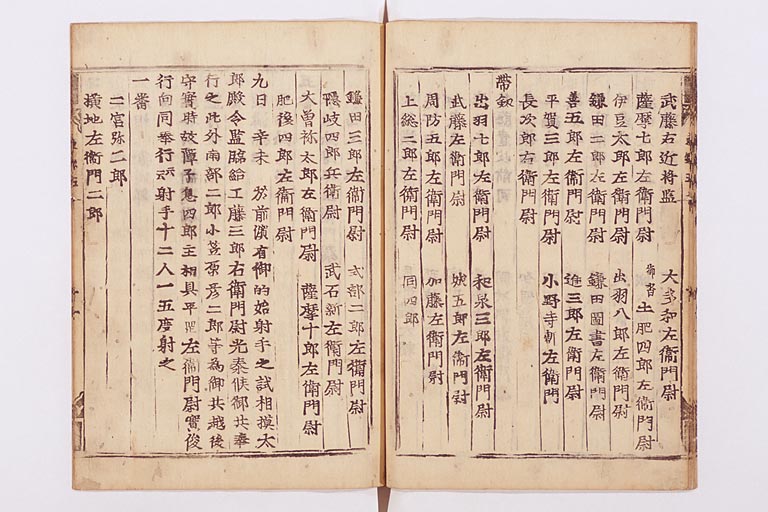 武藤右近将監　大多和左衛門尉
薩摩七郎左衛門尉　御沓　土肥四郎左衛門尉
伊豆太郎左衛門尉　出羽八郎左衛門尉
鎌田二郎左衛門尉　鎌田図書左衛門尉
善五郎左衛門尉　進三郎左衛門尉
平賀三郎左衛門尉　小野寺新左衛門
長次郎右衛門尉
帯釼
出羽七郎左衛門尉　和泉三郎左衛門尉
武藤左衛門尉　城五郎左衛門尉
周防五郎左衛門尉　加藤左衛門尉
上総三郎左衛門尉　同四郎
鎌田三郎左衛門尉　式部二郎左衛門尉
隠岐四郎兵衛尉　武石新左衛門尉
大曽祢太郎左衛門尉　薩摩十郎左衛門尉
肥後四郎左衛門尉
九日　辛未　於前濱有御的始射手之試相摸太
郎殿令監臨給工藤三郎右衛門尉光泰候御共奉
行之此外南部二郎小笠原彦二郎等為御共越後
守實時使子息四郎主相具平岡左衛門尉實俊
行向同奉行射手十二人一五度射之
一番
二宮弥二郎
横地左衛門二郎